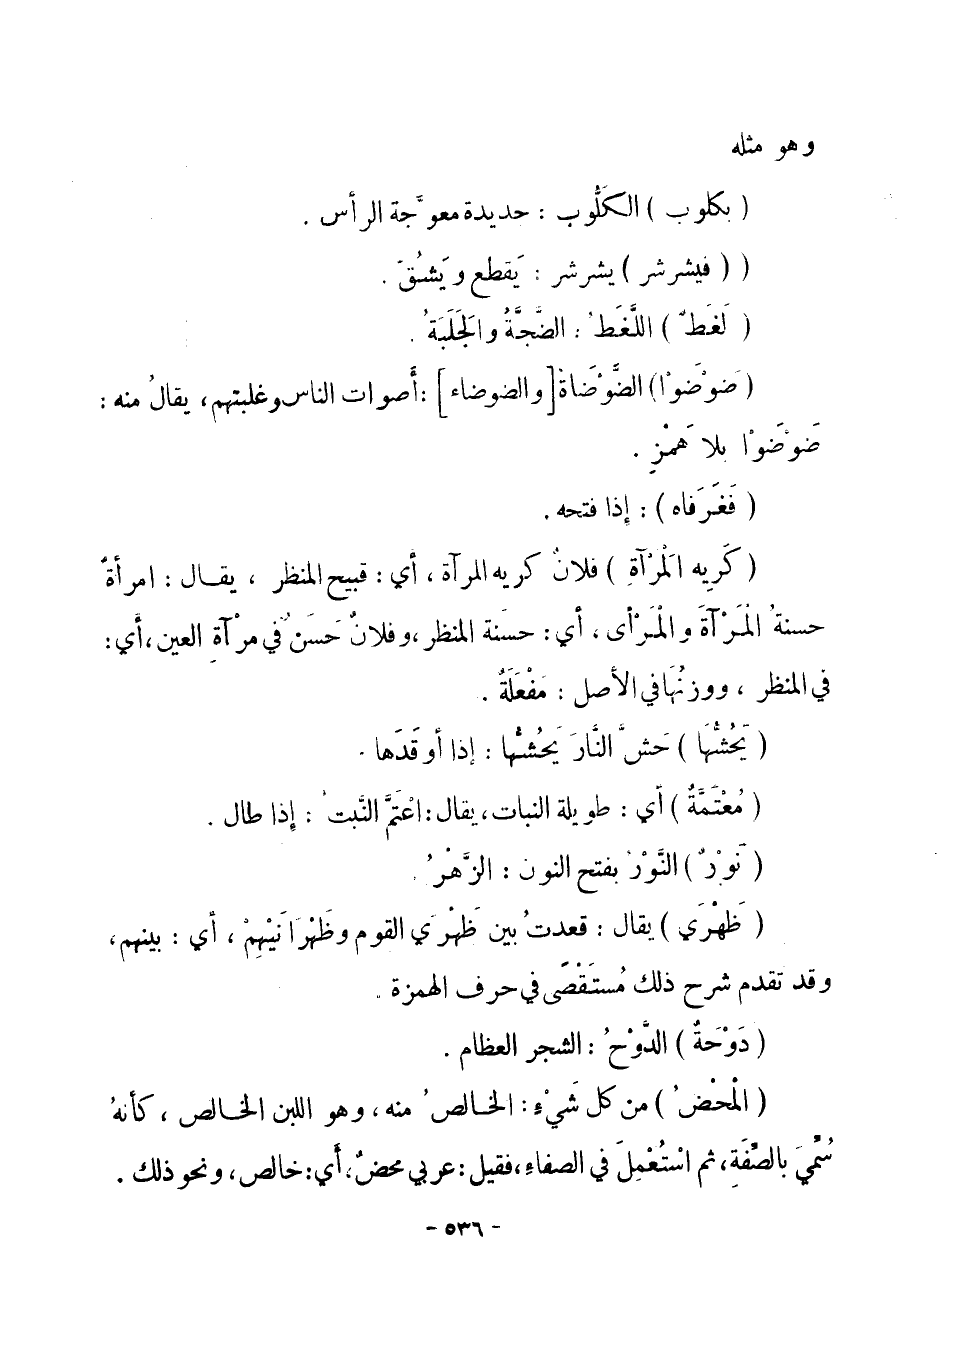 وهو مثله
( بكلوب ) الكَلُّوب : حديدة معوَّجة الرأس .
( ( فيشرشر ) يشرشر : يَقطع ويَشُقّ .
( لَغَطٌ ) اللَّغَطُ : الضَّجَّةُ والجَلَبَةُ .
( ضَوْضَوْا ) الضَّوْضَاةُ [ والضوضاء ] : أصوات الناس وغلبتهم ، يقالُ منه :
ضَوْضَوْا بلا هَمْزٍ .
( فَفَغَرَ فاه ) : إذا فتحه .
( كَرِيه الْمَرْآةِ ) فلانٌ كريه المرآة ، أي : قبيح المنظر ، يقال : امرأةٌ
حسنةُ الْمَرْآةَ والْمَرْأى ، أي : حسنة المنظر ، وفلانٌ حَسَنٌ في مرْآةِ العين ، أي :
في المنظر ، ووزنُهَا في الأصل : مَفْعَلَةٌ .
( يَحُشُّهَا ) حَشَّ النَّارَ يَحُشُّها : إذا أوقَدَها .
( مُعْتَمَّةٌ ) أي : طويلة النبات ، يقال : اعْتَمَّ النَّبتُ : إذا طال .
( نَوْرٌ ) النَّوْرُ بفتح النون : الزَّهْرُ .
( ظَهْرَي ) يقال : قعدتُ بين ظَهْرَي القوم وظَهْرَانَيْهِمْ ، أي : بينهم ،
وقد تقدم شرح ذلك مُستَقْصًى في حرف الهمزة .
( دَوْحَةٌ ) الدَّوْحُ : الشجر العظام .
( الْمَحْضُ ) من كل شَيْءٍ : الخالصُ منه ، وهو اللبن الخالص ، كأنهُ
سُمِّيَ بالصِّفَةِ ، ثم اسْتُعْمِلَ في الصفاءِ ، فقيل : عربي محضٌ ، أي : خالص ، ونحو ذلك .
- ٥٣٦ -